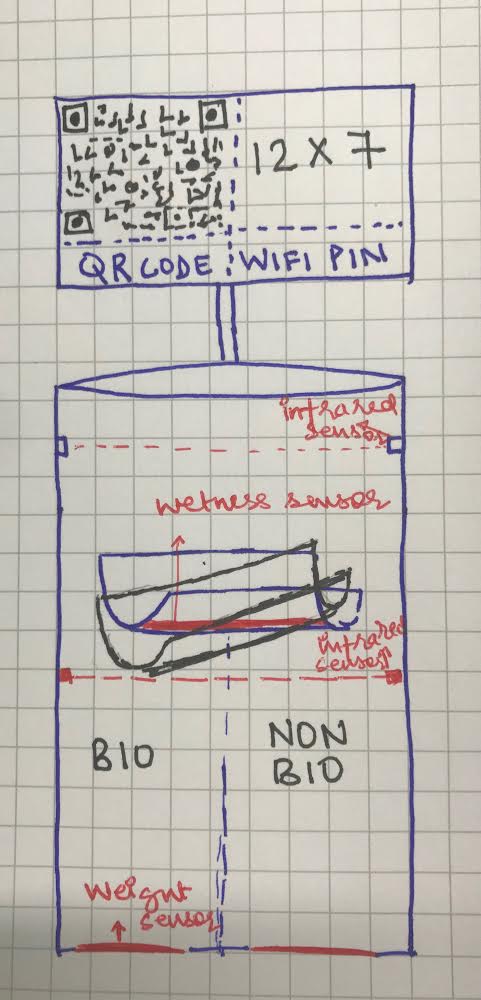 12 X 7
QR CODE
WIFI PIN
infrared
sensor
wetness sensor
infrared
sensor
BIO
NON
BIO
weight
sensor